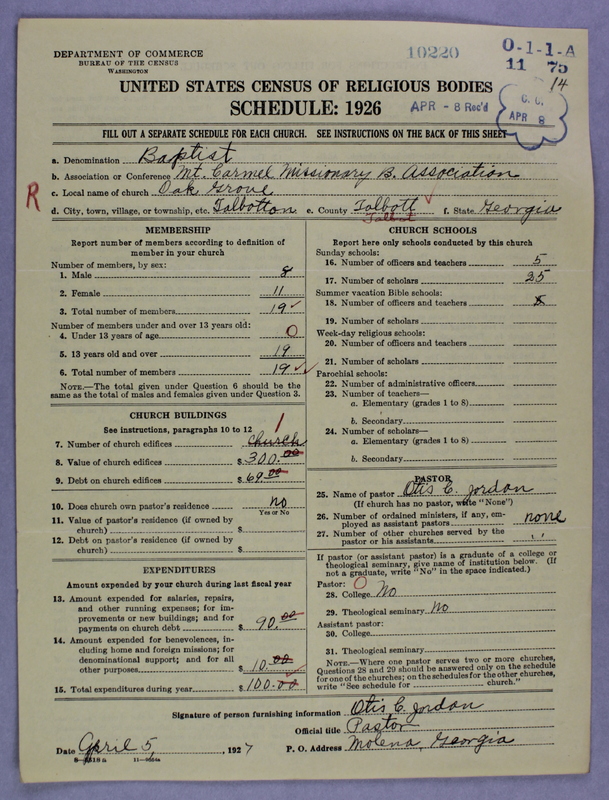 DEPARTMENT OF COMMERCE
BUREAU OF THE CENSUS
WASHINGTON
10220
O-1-1-A
11 75
14
UNITED STATES CENSUS OF RELIGIOUS BODIES
SCHEDULE: 1926
APR - 8 Rec'd
C. C.
APR 8
FILL OUT A SEPARATE SCHEDULE FOR EACH CHURCH. SEE INSTRUCTIONS ON THE BACK OF THIS SHEET
a. Denomination Baptist
b. Association or Conference Mt. Carmel Missionary B. Association
R c. Local name of church Oak Grove
d. City, town, village, or township, etc. Talbotton e. County Talbott f. State Georgia
Talbot
MEMBERSHIP
Report number of members according to definition of
member in your church
Number of members, by sex:
1. Male 8
2. Female 11
3. Total number of members 19
Number of members under and over 13 years old:
4. Under 13 years of age 0
5. 13 years old and over 19
6. Total number of members 19
NOTE.—The total given under Question 6 should be the
same as the total of males and females given under Question 3.
CHURCH BUILDINGS
See instructions, paragraphs 10 to 12
1
7. Number of church edifices church
8. Value of church edifices $ 300.00
9. Debt on church edifices $ 69.00
10. Does church own pastor's residence no
Yes or No
11. Value of pastor's residence (if owned by
church) $
12. Debt on pastor's residence (if owned by
church) $
EXPENDITURES
Amount expended by your church during last fiscal year
13. Amount expended for salaries, repairs,
and other running expenses; for im-
provements or new buildings; and for
payments on church debt $ 90.00
14. Amount expended for benevolences, in-
cluding home and foreign missions; for
denominational support; and for all
other purposes $ 10.00
15. Total expenditures during year $ 100.00
CHURCH SCHOOLS
Report here only schools conducted by this church
Sunday schools:
16. Number of officers and teachers 5
17. Number of scholars 25
Summer vacation Bible schools:
18. Number of officers and teachers x
19. Number of scholars
Week-day religious schools:
20. Number of officers and teachers
21. Number of scholars
Parochial schools:
22. Number of administrative officers
23. Number of teachers—
a. Elementary (grades 1 to 8)
b. Secondary
24. Number of scholars—
a. Elementary (grades 1 to 8)
b. Secondary
PASTOR
25. Name of pastor Otis C. Jordan
(If church has no pastor, write "None")
26. Number of ordained ministers, if any, em-
ployed as assistant pastors none
27. Number of other churches served by the
pastor or his assistants "
If pastor (or assistant pastor) is a graduate of a college or
theological seminary, give name of institution below. (If
not a graduate, write "No" in the space indicated.)
Pastor: O
28. College No
29. Theological seminary No
Assistant pastor:
30. College
31. Theological seminary
NOTE.—Where one pastor serves two or more churches,
Questions 28 and 29 should be answered only on the schedule
for one of the churches; on the schedules for the other churches,
write "See schedule for church."
Signature of person furnishing information Otis C. Jordan
Official title Pastor
Date April 5, 1927 P. O. Address Molena, Georgia